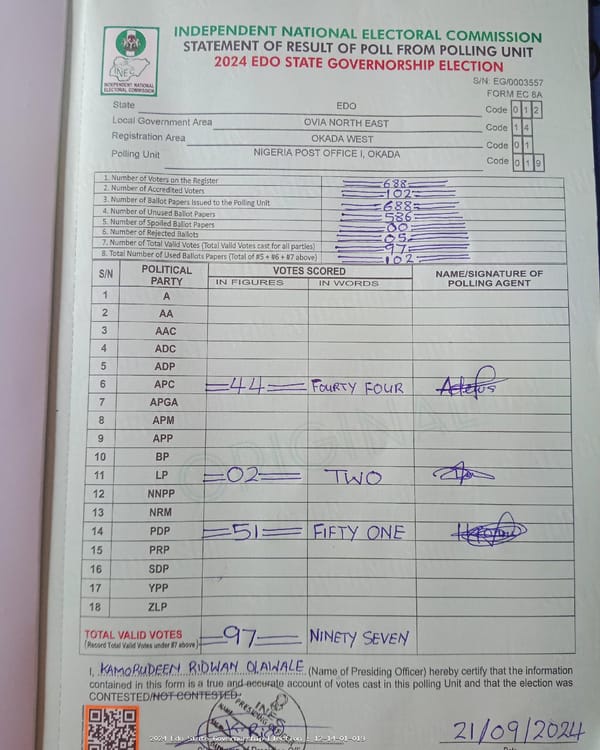 INDEPENDENT NATIONAL ELECTORAL COMMISSION
STATEMENT OF RESULT OF POLL FROM POLLING UNIT
2024 EDO STATE GOVERNORSHIP ELECTION
INEC
INDEPENDENT NATIONAL
ELECTORAL COMMISSION
S/N: EG/0003557
FORM EC 8A
State EDO Code 0 1 2
Local Government Area OVIA NORTH EAST Code 1 4
Registration Area OKADA WEST Code 0 1
Polling Unit NIGERIA POST OFFICE I, OKADA Code 0 1 9
1. Number of Voters on the Register 688
2. Number of Accredited Voters 102
3. Number of Ballot Papers Issued to the Polling Unit 688
4. Number of Unused Ballot Papers 586
5. Number of Spoiled Ballot Papers 00
6. Number of Rejected Ballots 05
7. Number of Total Valid Votes (Total Valid Votes cast for all parties) 97
8. Total Number of Used Ballots Papers (Total of #5 + #6 + #7 above) 102
S/N POLITICAL PARTY VOTES SCORED NAME/SIGNATURE OF POLLING AGENT
IN FIGURES IN WORDS
1 A
2 AA
3 AAC
4 ADC
5 ADP
6 APC =44= FOURTY FOUR
7 APGA
8 APM
9 APP
10 BP
11 LP =02= TWO
12 NNPP
13 NRM
14 PDP =51= FIFTY ONE
15 PRP
16 SDP
17 YPP
18 ZLP
ORIGINAL
TOTAL VALID VOTES =97= NINETY SEVEN
(Record Total Valid Votes under #7 above)
I, KAMORUDEEN RIDWAN OLAWALE (Name of Presiding Officer) hereby certify that the information
contained in this form is a true and accurate account of votes cast in this polling Unit and that the election was
CONTESTED/NOT CONTESTED.
INEC
2024 Edo State Governorship Election | 12-14-01-019
21/09/2024